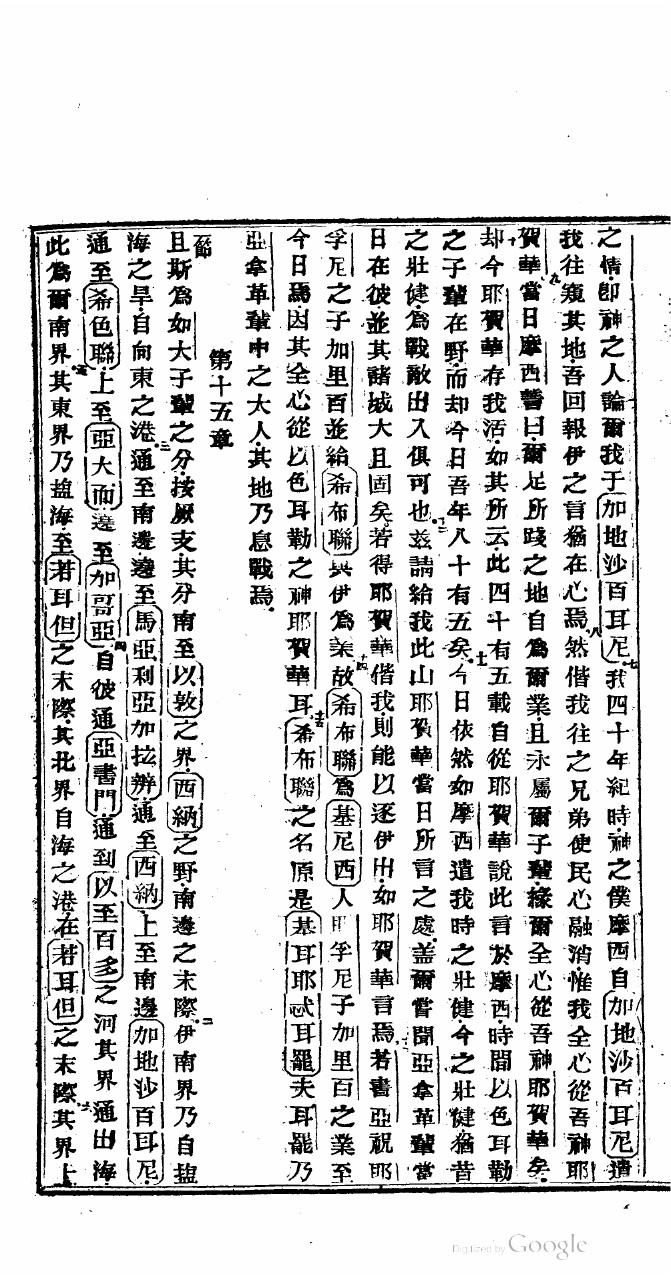 之情卽神之人論爾我于加地沙百耳尼七我四十年紀時神之僕摩西自加地沙百耳尼遣
我往窺其地吾回報伊之言猶在心焉八然偕我往之兄弟使民心融消惟我全心從吾神耶
賀華九當日摩西誓曰爾足所踐之地自爲爾業且永屬爾子輩緣爾全心從吾神耶賀華矣
十却今耶賀華存我活如其所云此四十有五載自從耶賀華說此言於摩西時間以色耳勒
之子輩在野而却今日吾年八十有五矣十一今日依然如摩西遣我時之壯健今之壯健猶昔
之壯健爲戰敵出入俱可也十二茲請給我此山耶賀華當日所言之處蓋爾嘗聞亞拿革輩當
日在彼並其諸城大且固矣若得耶賀華偕我則能以逐伊出如耶賀華言焉十三若書亞祝耶
孚尼之子加里百並給希布聯與伊爲業十四故希布聯爲基尼西人耶孚尼子加里百之業至
今日焉因其全心從以色耳勒之神耶賀華耳十五希布聯之名原是基耳耶忒耳罷夫耳罷乃
亞拿革輩中之大人其地乃息戰焉
第十五章
一節且斯爲如大子輩之分按厥支其分南至以敦之界西納之野南邊之末際二伊南界乃自鹽
海之旱自向東之港三通至南邊邊至馬亞利亞加拉辨通至西納上至南邊加地沙百耳尼
通至希色聯上至亞大而邊至加哥亞四自彼通亞書門通到以至百多之河其界通出海
此爲爾南界五其東界乃鹽海至若耳但之末際其北界自海之港在若耳但之末際六其界上
Digitized by Google